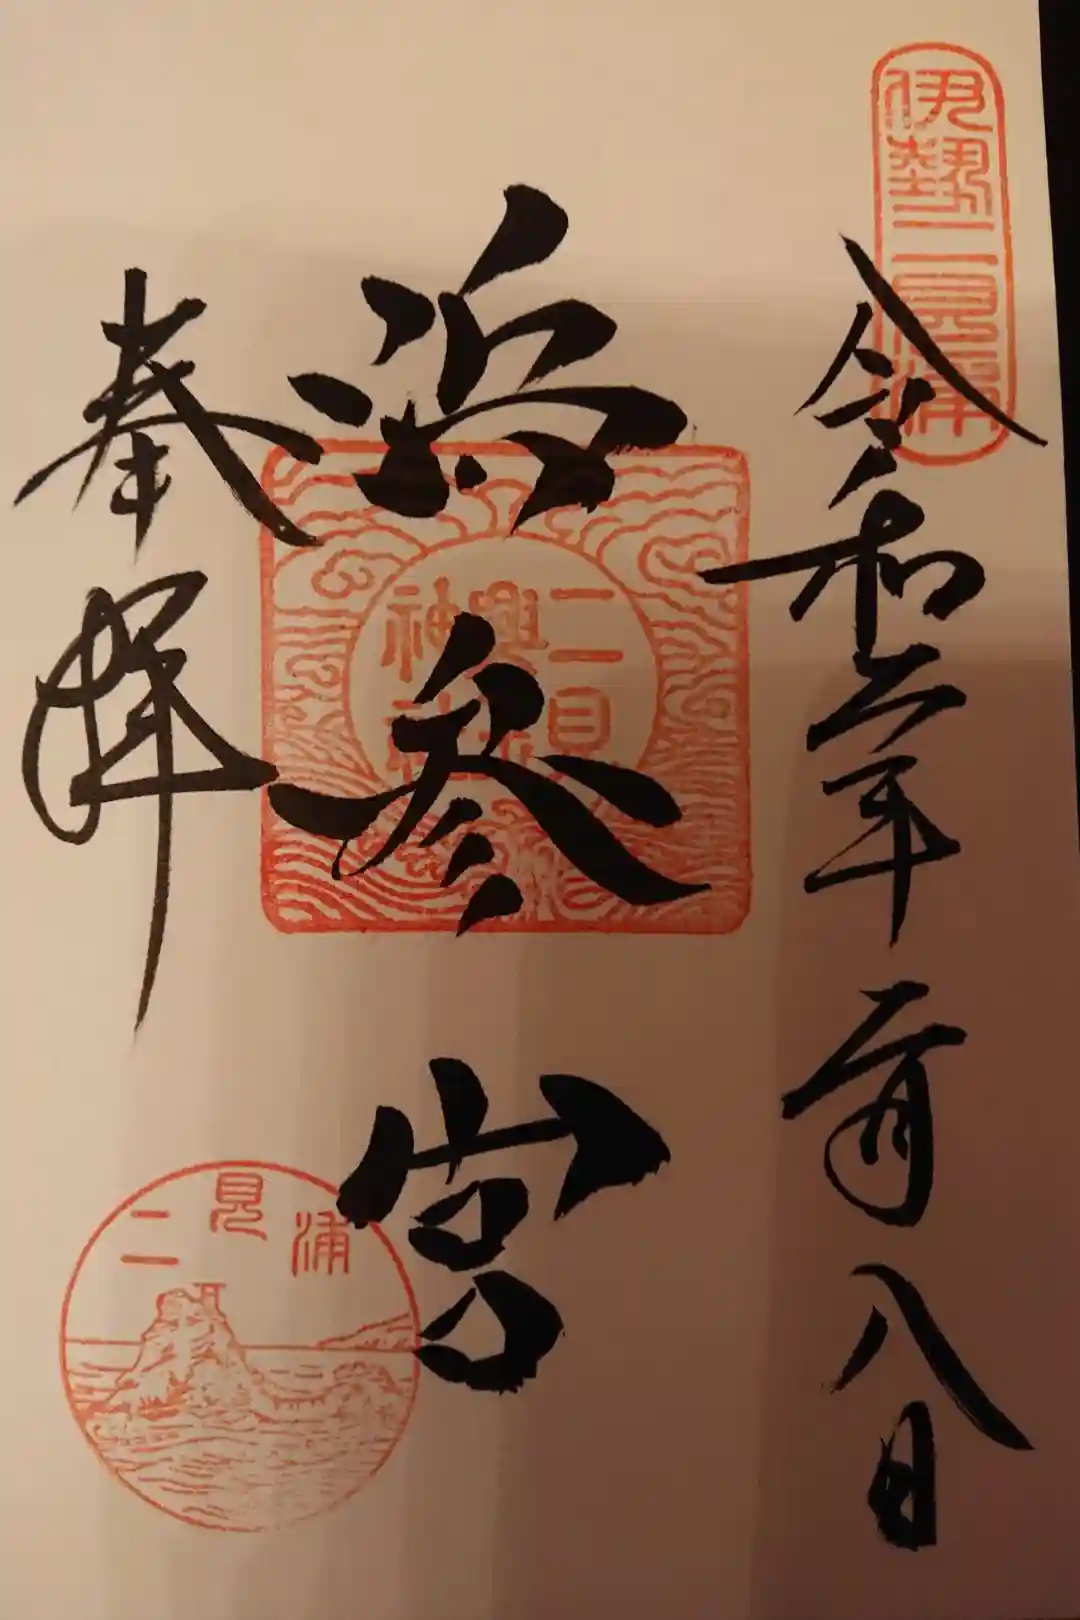 伊勢二見浦
令和六年二月八日
浜参宮
二見
興玉
神社
奉拝
二見浦